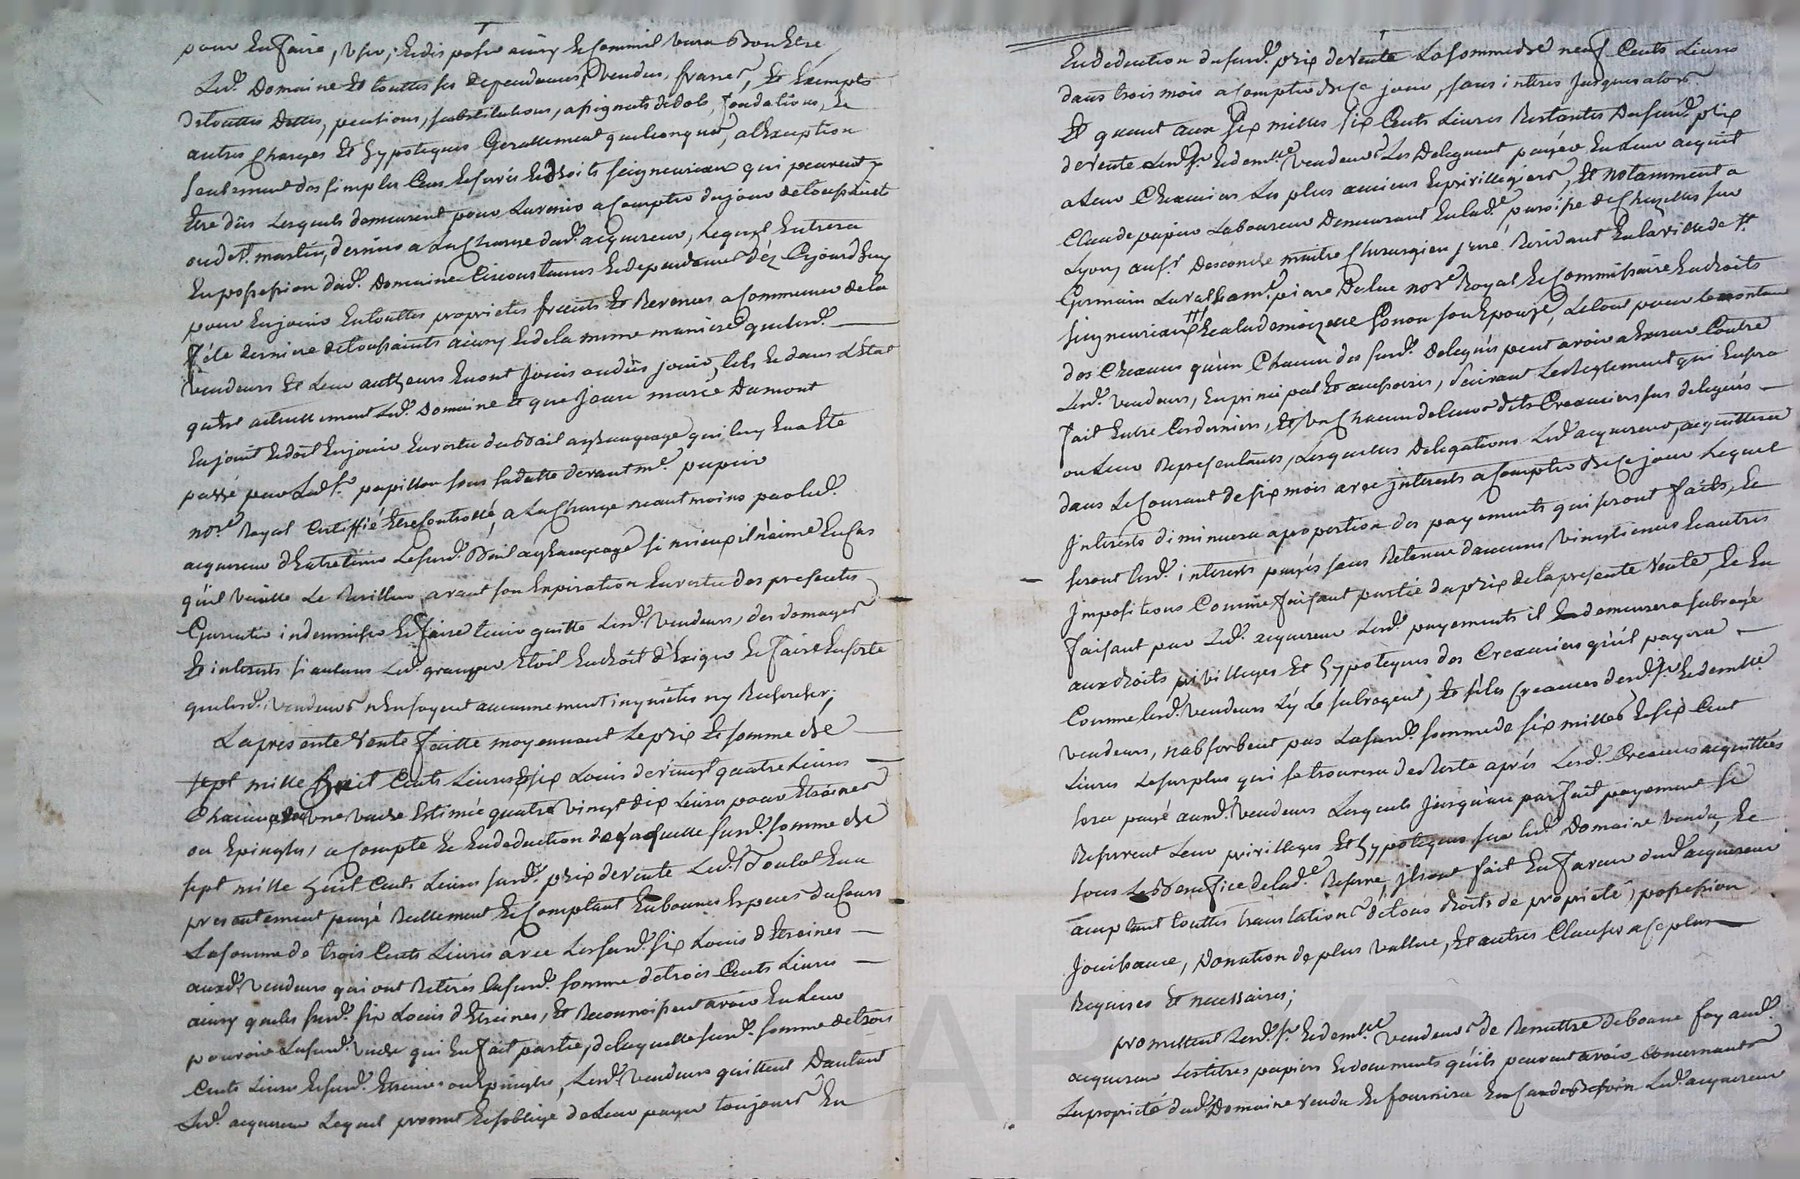 pour En faire, user, et disposer ainsy et comme il verra Bon Etre
Led. Domaine Et touttes ses dependances vendus, francs, Et Exempts
de touttes Dettes, pentions, substitutions, assignats de dots, fondations, Et
autres Charges Et hypoteques Generallement quelconques, a l'Exception
seulement des simples Cens et servis et droits seigneuriaux qui peuvent y
Etre dûs Lesquels demeurent pour Lavenir a Compter du jour de toussaint
ou de St. martin, dernier a La Charge dud. acquereur, Lequel Entrera
En possession dud. Domaine Circonstances et dependances dez Cejourd'huy
pour En jouir En touttes proprietes fruits Et Revenus a Commencer de la
fête derniere de toussaints ainsy et de la meme maniere que lesd.
vendeurs Et Leur autheurs En ont Jouis ou dûs jouir, tels Et dans L'Etat
qu'est actuellement Led. Domaine et que Jean marie Dumont
En jouit Et doit En jouir En vertu du Bail a grangeage qui luy En a Ete
passé par Led. sr. papillon sous sa datte devant me. papein
nore. Royal Certiffié Etre Controllé, a La Charge neantmoins par led.
acquereur d'Entretenir Lesusd. Bail a grangeage si mieux il n'aime En Cas
qu'il veuille Le Resillier avant son Expiration En vertu des presentes
Garentir indemniser Et faire tenir quitte Lesd. vendeurs, des domages
Et interests si aucuns Led. granger Etoit En droit d'Exiger Et faire En sorte
que lesd. vendeurs n'En soyent aucunement inquiétés ny Recherchés;
La presente vente faitte moyennant Le prix Et somme de
sept mille huit Cents Livres Et six Louis de vingt quatre Livres
Chacun, avec une vache Estimée quatre vingt dix Livres pour Etreines
ou Epingles, a Compte Et En deduction de Laquelle susd. somme de
sept mille huit Cents Livres susd. prix de vente Led. Toulot En a
presentement payé Reellement Et Comptant En bonnes Especes du Cours
La somme de trois Cents Livres avec Les susd. six Louis d'Etreines
auxd. vendeurs qui ont Retirés La susd. somme de trois Cents Livres
ainsy que les susd. six Louis d'Etreines, Et Reconnoissent avoir En Leur
pouvoir La susd. vache qui En fait partie, de laquelle susd. somme de trois
Cents Livres Et susd. Etreines ou Epingles, Lesd. vendeurs quittent D'autant
Led. acquereur Lequel promet Et s'oblige de Leur payer toujours En
En deduction du susd. prix de vente La somme de neuf Cents Livres
dans trois mois a Compter de Ce jour, sans interes Jusques alors
Et quant aux six milles six Cents Livres Restantes Du susd. prix
de vente Lesd. sr. Et demlle. vendeurs Les Deleguent payer En Leur acquit
a Leur Creanciers Les plus anciens Et privillegiers, Et notamment a
Claude papier Laboureur Demeurant En lad. paroisse de Chazelles sur
Lyon, au sr. Descombe maitre Chirurgien juré Residant En la ville de St.
Germain Laval a me. piare Dulac nore. Royal Et Commissaire En droits
seigneuriaux Et a la demoizelle Gonon son Epouze, Le tout pour le montant
des Creances qu'un Chacun des susd. delegués peut avoir a Exercer Contre
Lesd. vendeurs, En principal Et accessoires, suivant Le Reglement qui En sera
fait Entre Ces derniers, Et Un Chacun de leurs dits Creanciers sus delegués
ou Leur Representants, Lesquelles Delegations Led. acquereur, acquittera
dans Le Courant de six mois avec jnterests a Compter de Ce jour Lequel
Jnterests diminuera a proportion des payements qui seront faits, Et
seront lesd. interests payés sans Retenue d'aucuns vingtiemes Et autres
Jmpositions Comme faisant partie du prix de la presente vente, Et En
faisant par Led. acquereur Lesd. payements il demeurera subrogé
aux droits privilleges Et hypoteques des Creanciers qu'il payera
Comme lesd. vendeurs L'y Le subrogent, Et si les Creances desd. sr. Et demlle.
vendeurs, n'absorbent pas La susd. somme de six milles Et six Cent
Livres Le surplus qui se trouvera de Reste aprés Lesd. Creances acquittées
sera payé auxd. vendeurs Lesquels Jusqu'au parfait payement se
Reservent Leur privilleges Et hypoteques sur led. Domaine vendu, Et
sous Le Benefice de lad. Reserve, jls ont fait En faveur dud. acquereur
acceptant touttes translations de tous droits de proprieté, possession
Jouissance, Donation de plus vallue, Et autres Clauses a ce plus
Requises Et necessaires;
promettent Lesd. sr. Et demlle. vendeurs de Remettre de bonne foy aud.
acquereur Les titres papiers Et documents qu'ils peuvent avoir Concernants
La proprieté dud. Domaine vendu Et fournira En Cas de Besoin Led. acquereur